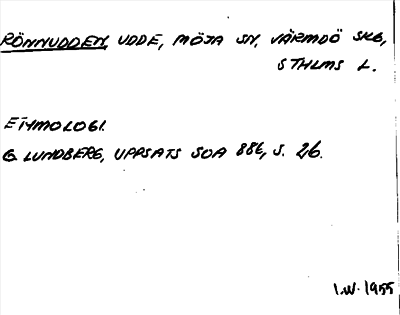 RÖNNUDDEN, UDDE, MÖJA SN, VÄRMDÖ SKG,
STHLMS L.
ETYMOLOGI.
G. LUNDBERG, UPPSATS SOA 886, S. 26.
I.W. 1955